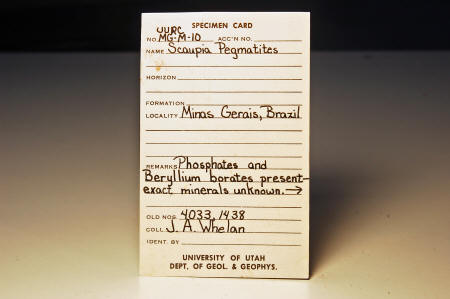 SPECIMEN CARD
UURC
NO. MG-M-10 ACC'N NO.
NAME Scaupia Pegmatites
HORIZON
FORMATION
LOCALITY Minas Gerais, Brazil
REMARKS Phosphates and
Beryllium borates present-
exact minerals unknown. →
OLD NOS. 4033, 1438
COLL. J. A. Whelan
IDENT. BY
UNIVERSITY OF UTAH
DEPT. OF GEOL. & GEOPHYS.